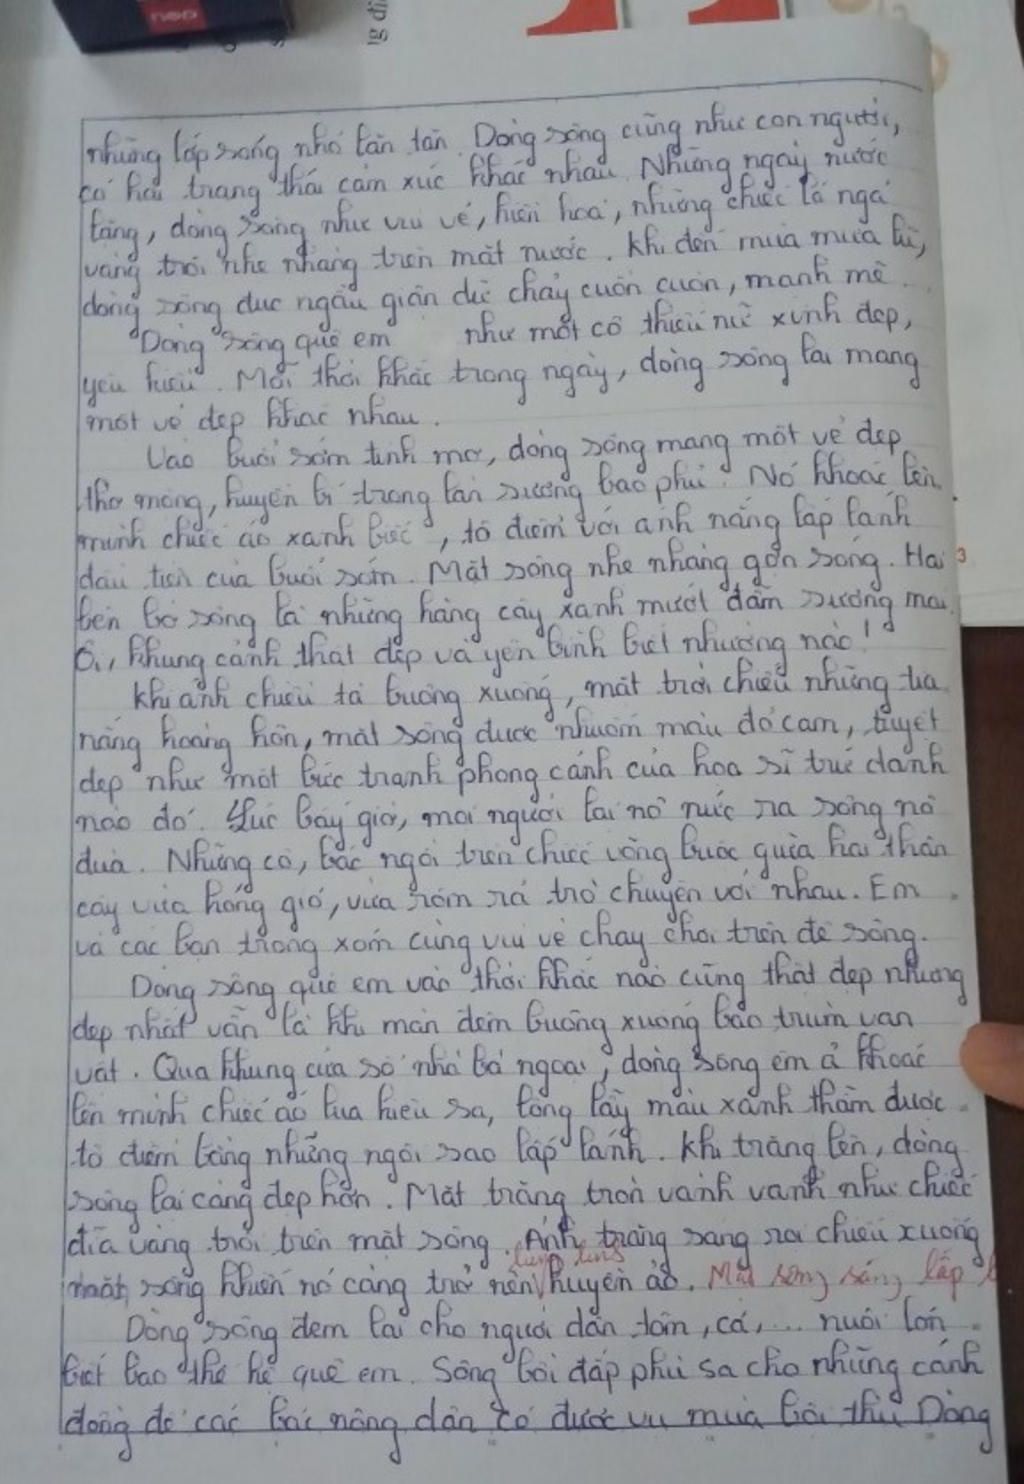 neo
ng đi
những lớp sóng nhỏ lăn tăn. Dòng sông cũng như con người,
có hai trạng thái cảm xúc khác nhau. Những ngày nước
lặng, dòng sông như vui vẻ, hiền hòa, những chiếc lá ngả
vàng trôi nhẹ nhàng trên mặt nước. Khi đến mùa mưa lũ,
dòng sông đục ngầu giận dữ chảy cuồn cuộn, mạnh mẽ.
Dòng sông quê em như một cô thiếu nữ xinh đẹp,
yêu kiều. Mỗi thời khắc trong ngày, dòng sông lại mang
một vẻ đẹp khác nhau.
Vào buổi sớm tinh mơ, dòng sông mang một vẻ đẹp
thơ mộng, huyền bí trong làn sương bao phủ. Nó khoác lên
mình chiếc áo xanh biếc, tô điểm với ánh nắng lấp lánh
đầu tiên của buổi sớm. Mặt sông nhẹ nhàng gợn sóng. Hai
bên bờ sông là những hàng cây xanh mướt đẫm sương mai.
Ôi, khung cảnh thật đẹp và yên bình biết nhường nào!
Khi ánh chiều tà buông xuống, mặt trời chiếu những tia
nắng hoàng hôn, mặt sông được nhuộm màu đỏ cam, tuyệt
đẹp như một bức tranh phong cảnh của họa sĩ trứ danh
nào đó. Lúc bấy giờ, mọi người lại nô nức ra sông nô
đùa. Những cô, bác ngồi trên chiếc võng buộc giữa hai thân
cây vừa hóng gió, vừa rôm rả trò chuyện với nhau. Em
và các bạn trong xóm cùng vui vẻ chạy chơi trên đê sông.
Dòng sông quê em vào thời khắc nào cũng thật đẹp nhưng
đẹp nhất vẫn là khi màn đêm buông xuống bao trùm vạn
vật. Qua khung cửa sổ nhà bà ngoại, dòng sông êm ả khoác
lên mình chiếc áo lụa kiêu sa, lộng lẫy màu xanh thẫm được
tô điểm bằng những ngôi sao lấp lánh. Khi trăng lên, dòng
sông lại càng đẹp hơn. Mặt trăng tròn vành vạnh như chiếc
đĩa vàng trôi trên mặt sông. Ánh trăng sáng rọi chiếu xuống
mặt sông khiến nó càng trở nên huyền ảo. Mặt sông sáng lấp
Dòng sông đem lại cho người dân tôm, cá,... nuôi lớn
biết bao thế hệ quê em. Sông bồi đắp phù sa cho những cánh
đồng để các bác nông dân có được vụ mùa bội thu. Dòng
3